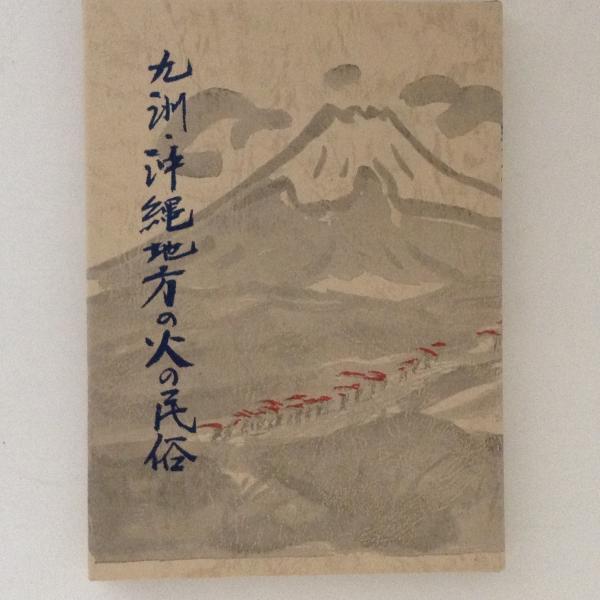 九洲・沖縄地方の火の民俗